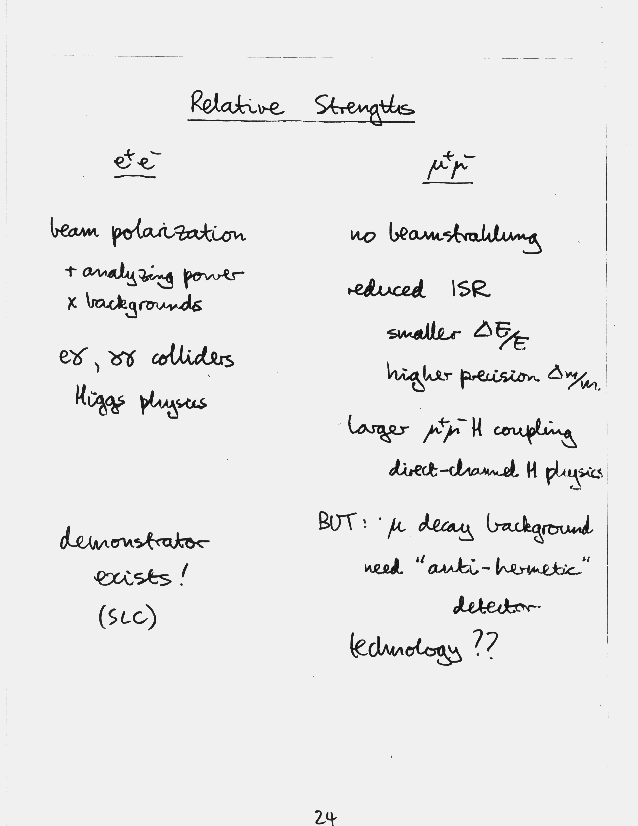 Relative Strengths
e⁺e⁻
beam polarization
+ analyzing power
x backgrounds
eγ, γγ colliders
Higgs physics
demonstrator
exists!
(SLC)
μ⁺μ⁻
no beamstrahlung
reduced ISR
smaller ΔE/E
higher precision Δm/m.
Larger μ⁺μ⁻H coupling
direct-channel H physics
BUT: · μ decay background
need "anti-hermetic"
detector
technology ??
24